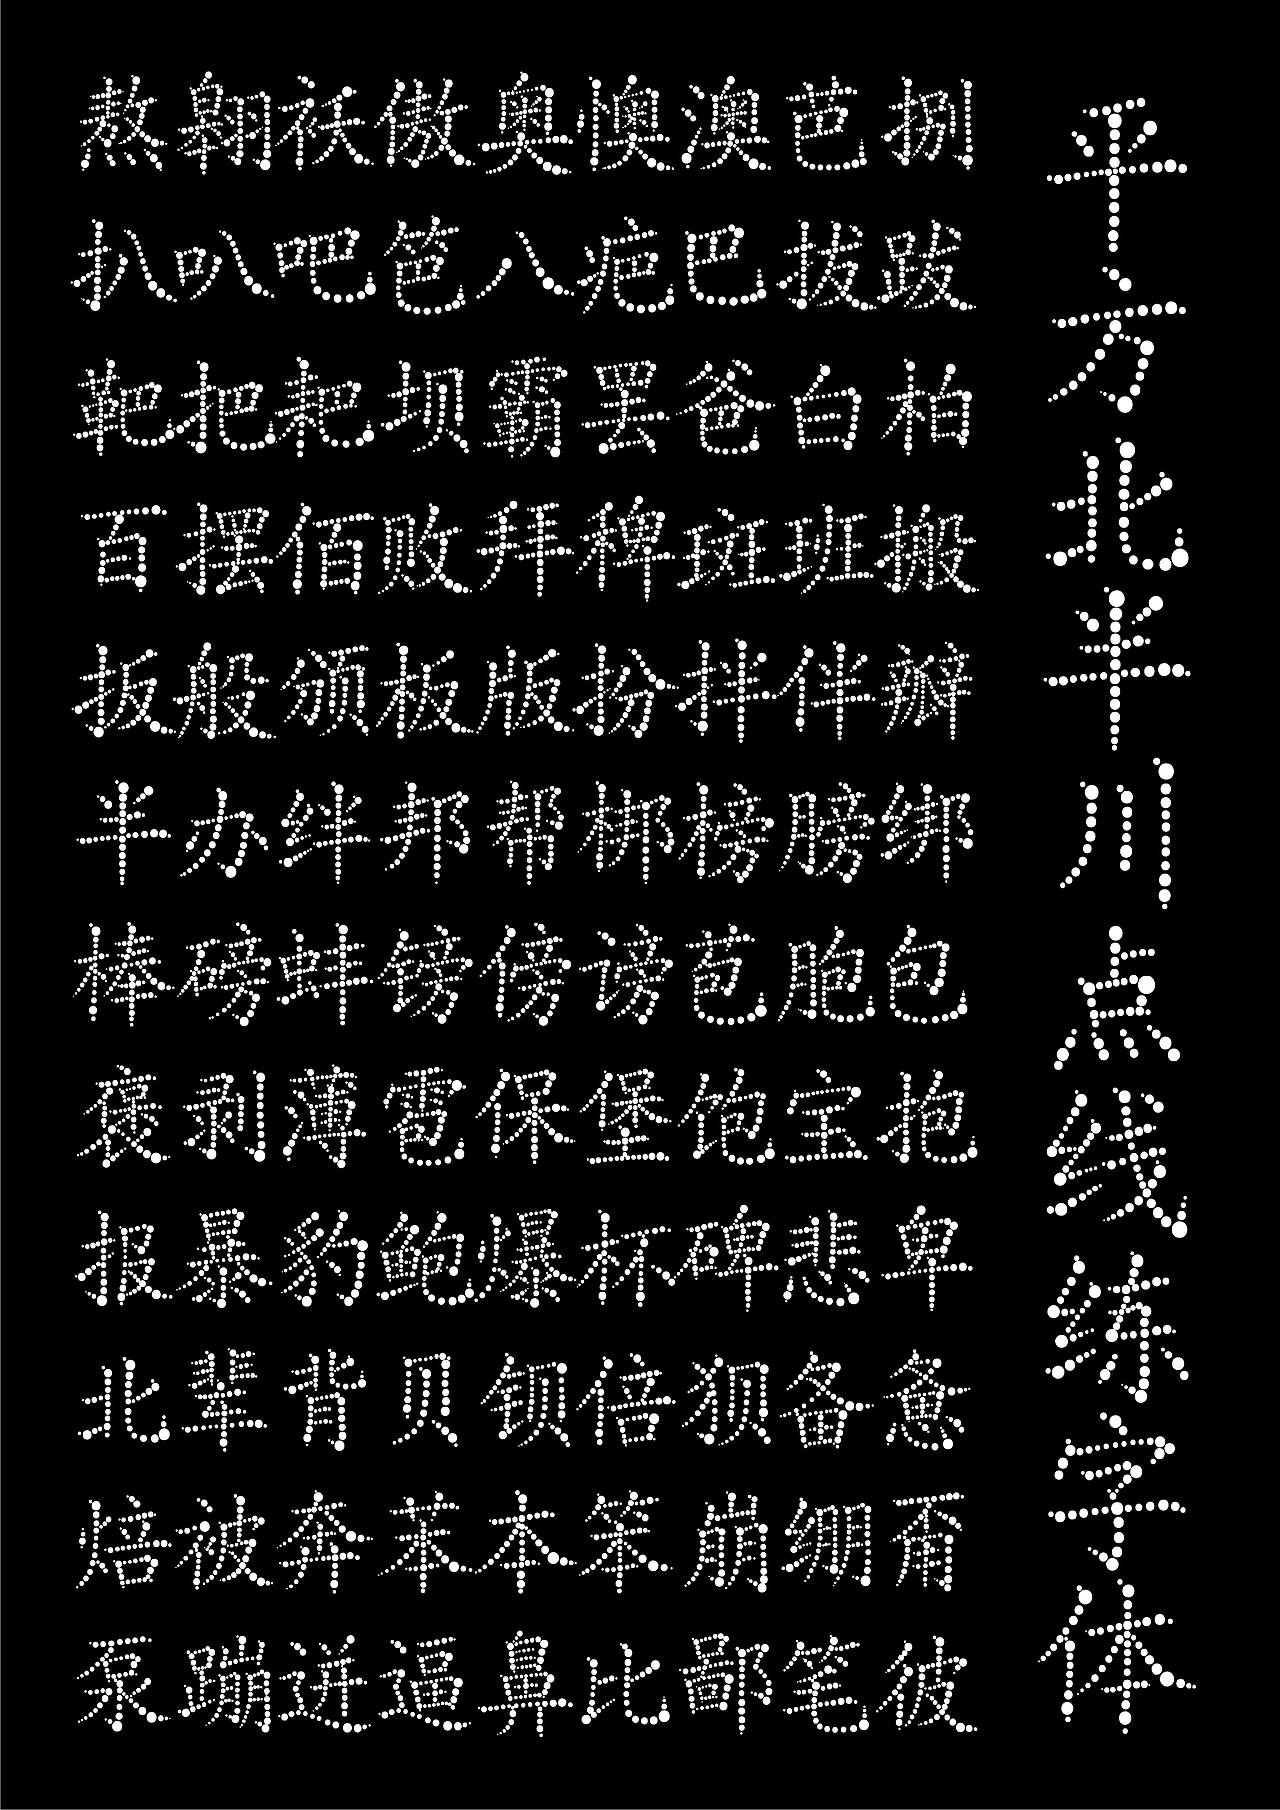 平方北半川点线练字体
熬翱袄傲奥懊澳芭捌
扒叭吧笆八疤巴拔跋
靶把耙坝霸罢爸白柏
百摆佰败拜稗斑班搬
扳般颁板版扮拌伴瓣
半办绊邦帮梆榜膀绑
棒磅蚌镑傍谤苞胞包
褒剥薄雹保堡饱宝抱
报暴豹鲍爆杯碑悲卑
北辈背贝钡倍狈备惫
焙被奔苯本笨崩绷甭
泵蹦迸逼鼻比鄙笔彼